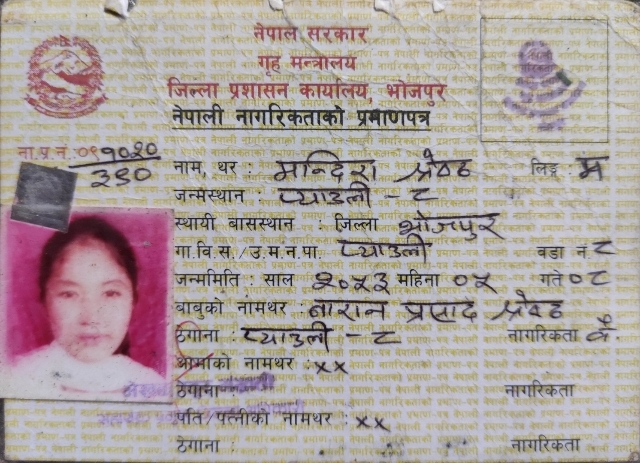 नेपाल सरकार
गृह मन्त्रालय
जिल्ला प्रशासन कार्यालय, भोजपुर
नेपाली नागरिकताको प्रमाणपत्र
ना.प्र.नं. ०९१०२०
३९०
नाम, थर : मन्दिरा श्रेष्ठ लिङ्ग : म
जन्मस्थान : प्याउली - ८
स्थायी बासस्थान : जिल्ला भोजपुर
गा.वि.स./उ.म.न.पा. प्याउली वडा नं. ८
जन्ममिति : साल २०५३ महिना ०५ गते ०८
बाबुको नामथर : नारान प्रसाद श्रेष्ठ
ठेगाना : प्याउली - ८ नागरिकता वं.
आमाको नामथर : xx
ठेगाना नागरिकता
पति/पत्नीको नामथर : xx
ठेगाना : नागरिकता